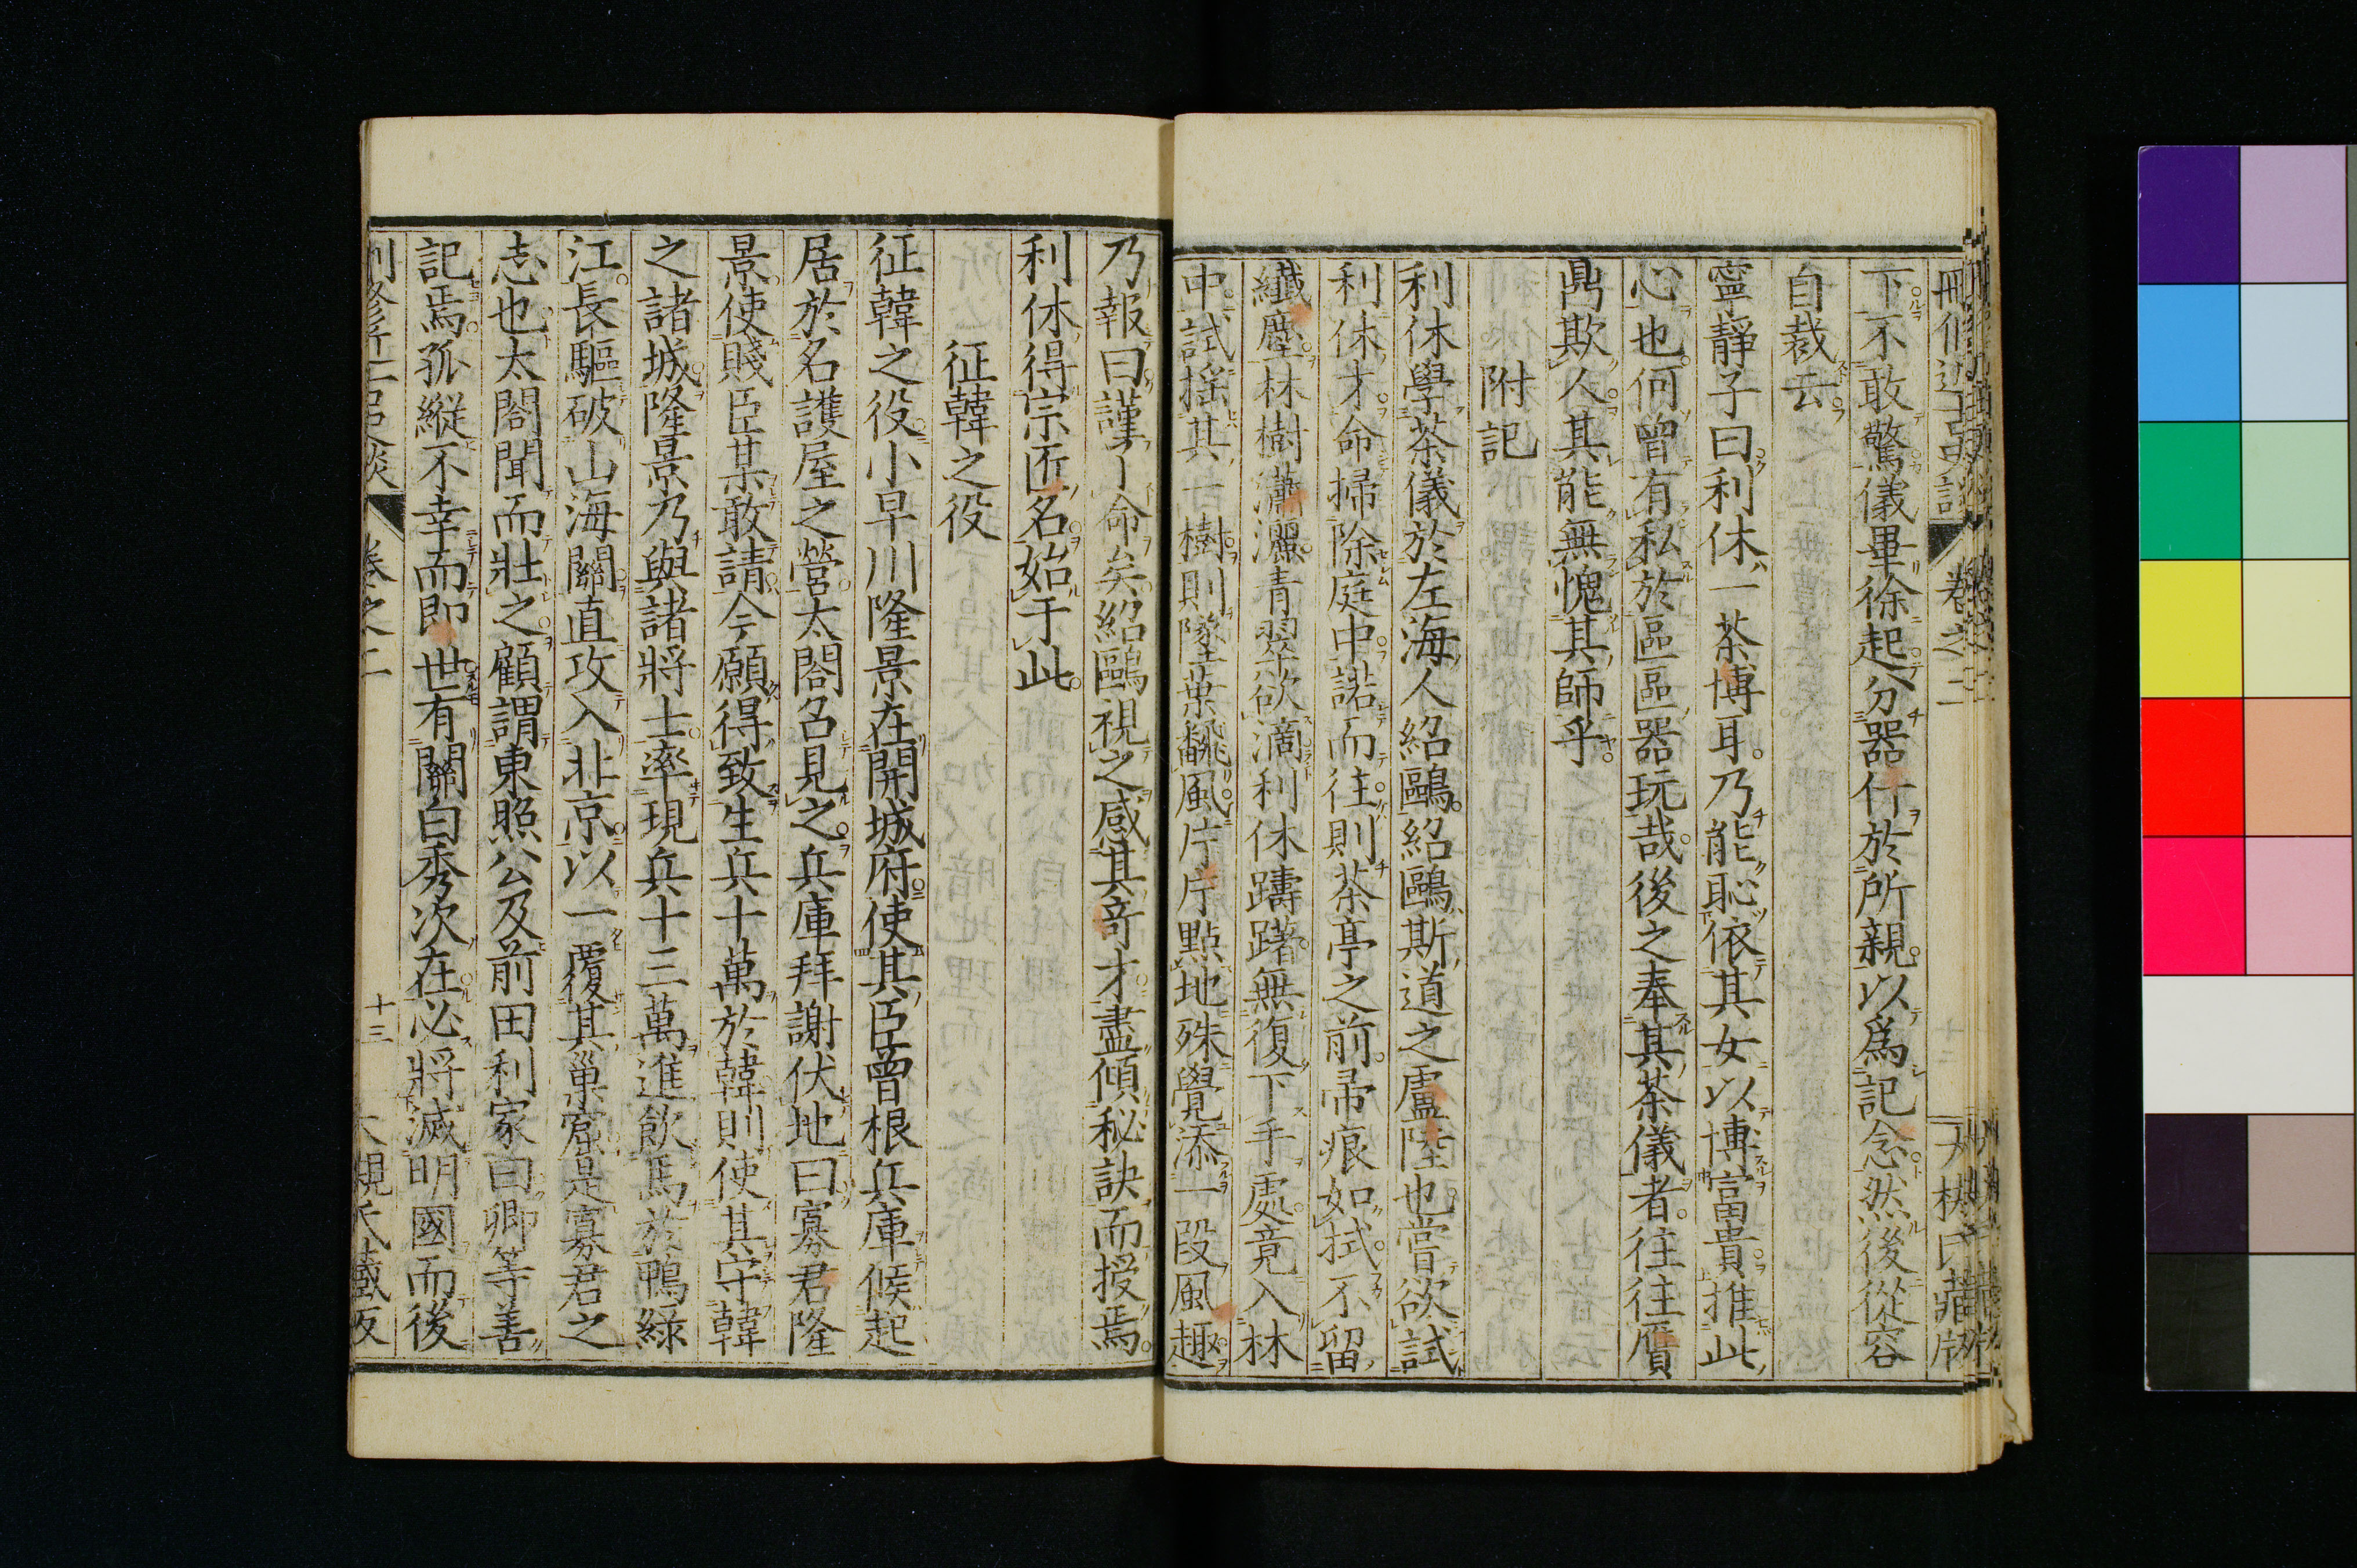 下不敢驚儀畢徐起分器什於所親以爲記念然後從容
自裁云
寧靜子曰利休一茶博耳乃能恥依其女以博富貴推此
心也何曾有私於區區器玩哉後之奉其茶儀者往往贋
鼎欺人其能無愧其師乎
附記
利休學茶儀於左海人紹鷗紹鷗斯道之盧陸也嘗欲試
利休才命掃除庭中諾而往則茶亭之前帚痕如拭不留
纖塵林樹瀟灑青翠欲滴利休躊躇無復下手處竟入林
中試揺其一樹則墜葉飜風片片點地殊覺添一段風趣
乃報曰謹了命矣紹鷗視之感其竒才盡傾秘訣而授焉
利休得宗匠名始于此
征韓之役
征韓之役小早川隆景在開城府使其臣曾根兵庫候起
居於名護屋之營太閤召見之兵庫拜謝伏地曰寡君隆
景使賤臣某敢請今願得致生兵十萬於韓則使其守韓
之諸城隆景乃與諸將士率現兵十三萬進飮馬於鴨綠
江長驅破山海關直攻入北京以一覆其巢窟是寡君之
志也太閤聞而壯之顧謂東照公及前田利家曰卿等善
記焉孤縱不幸而即世有關白秀次在必將滅明國而後
卷之二 十三